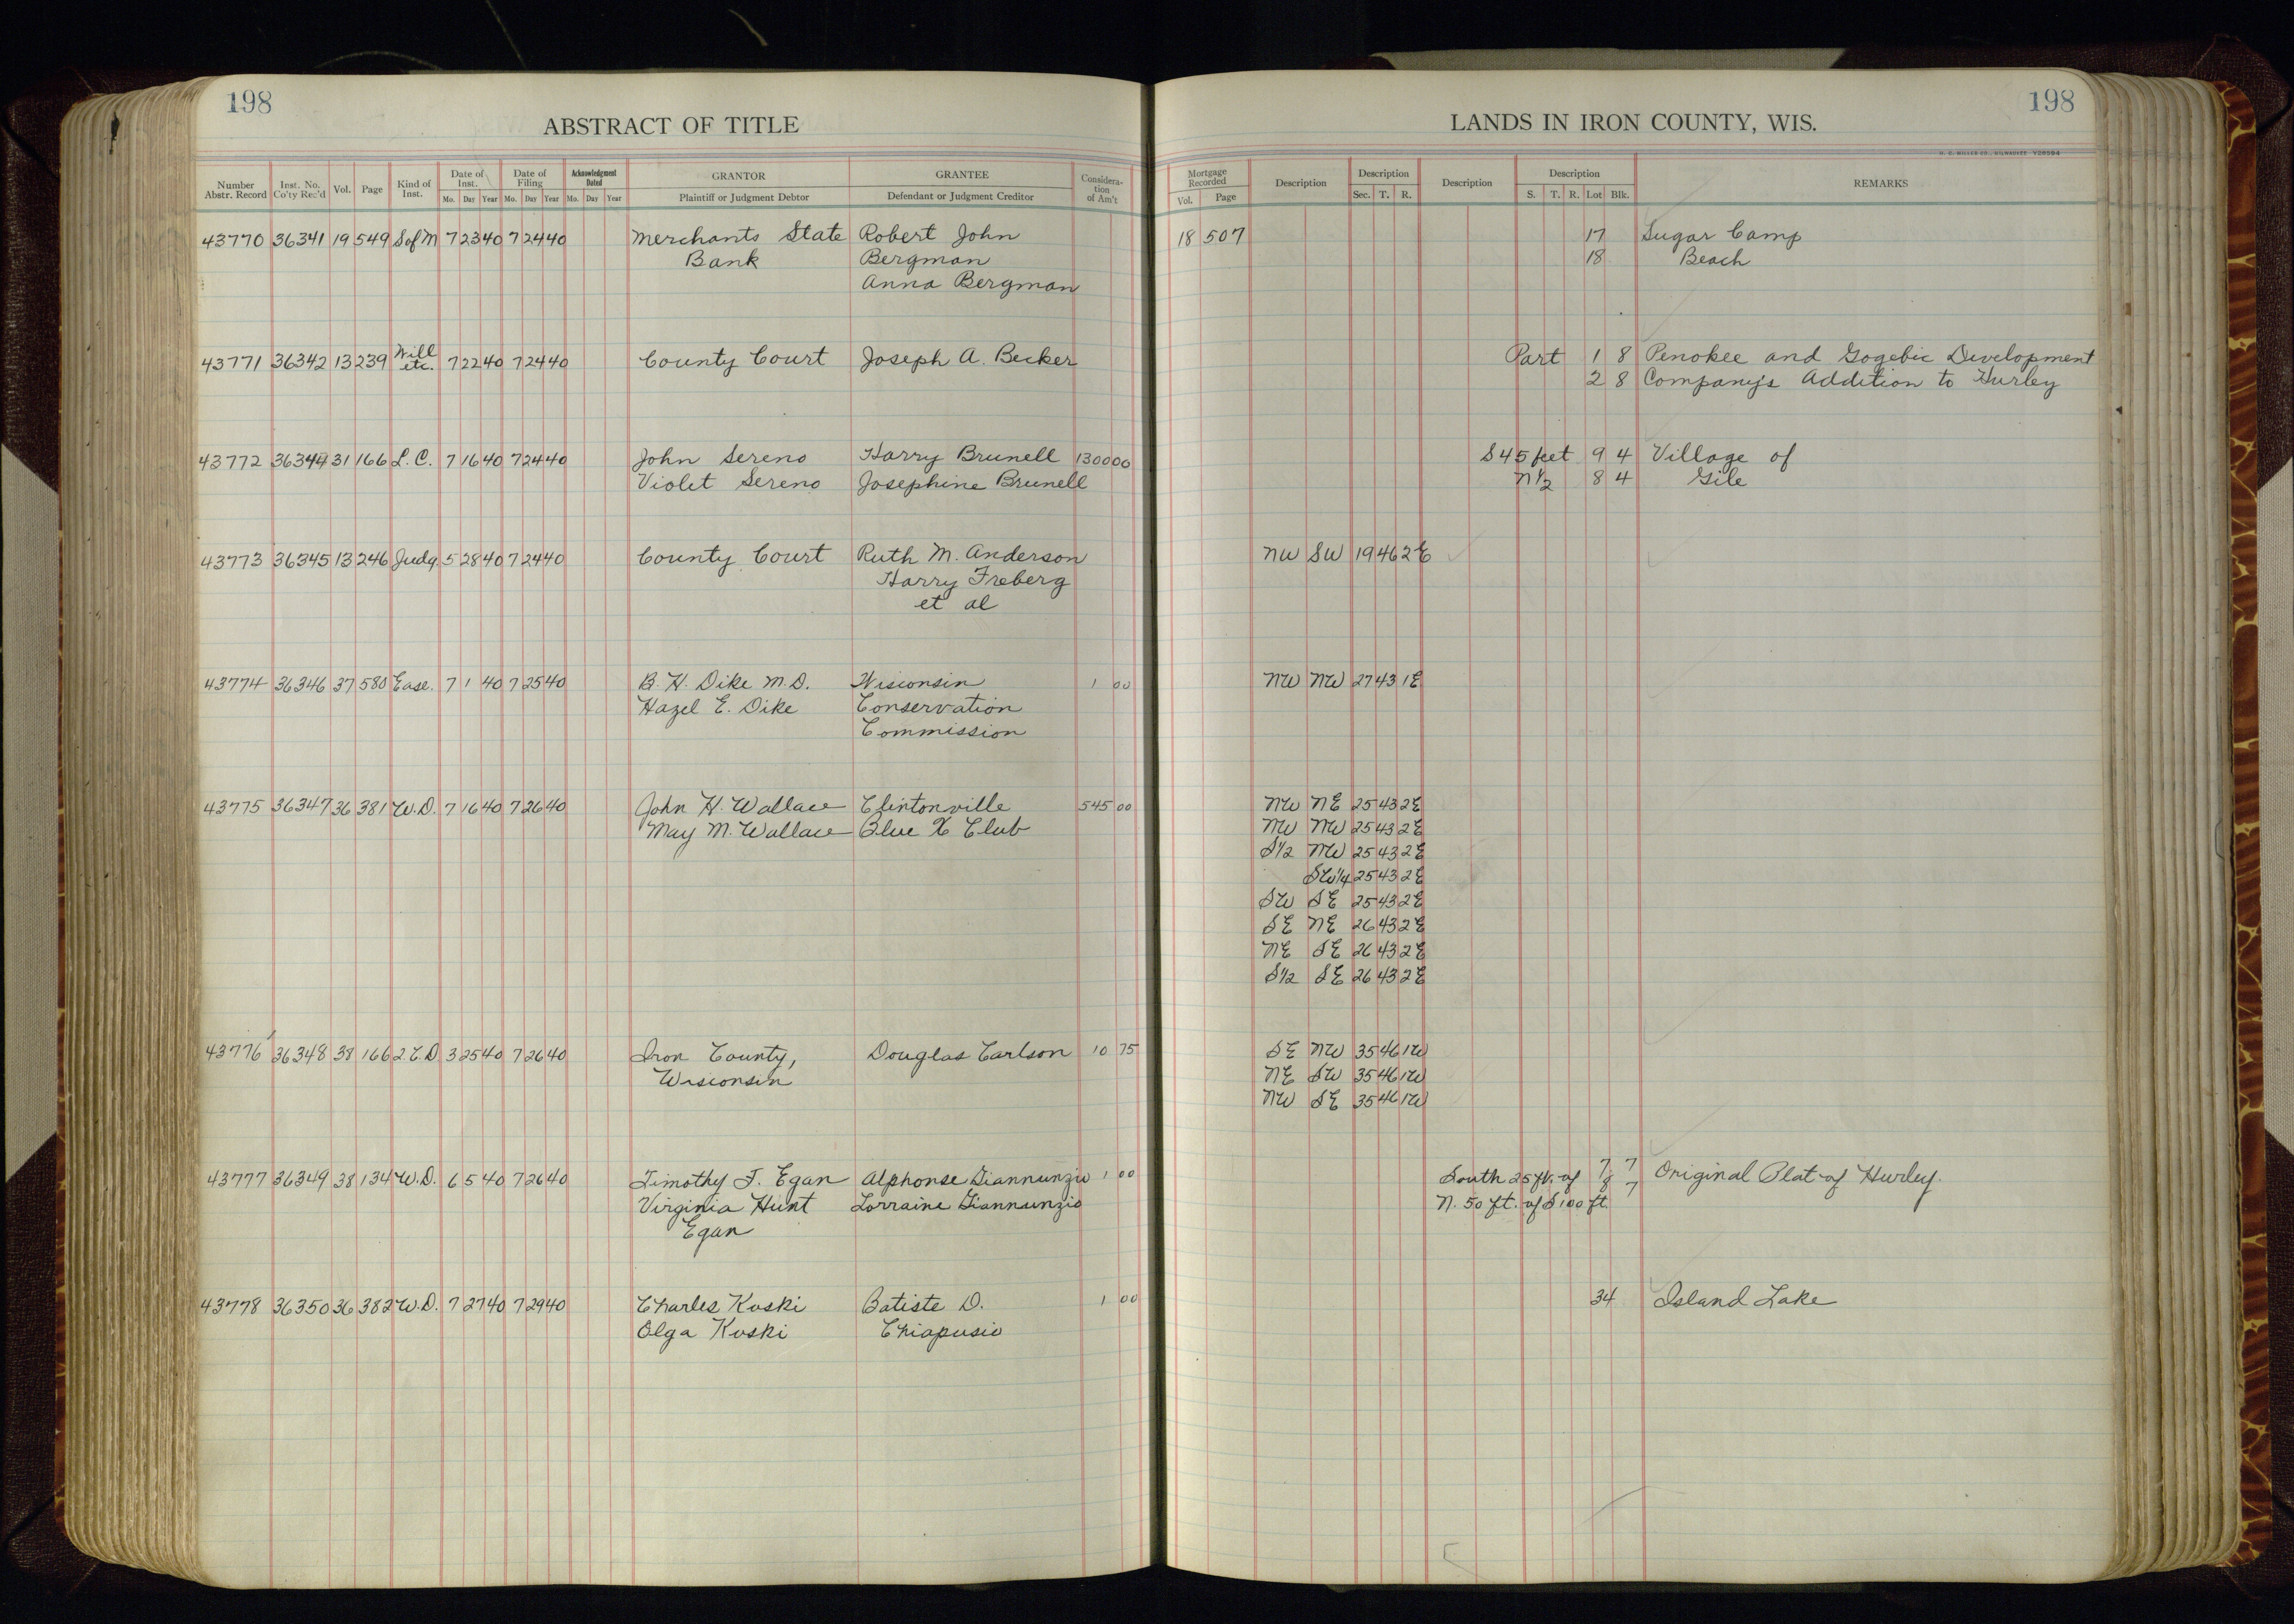 198
ABSTRACT OF TITLE
LANDS IN IRON COUNTY, WIS.
198
H. C. MILLER CO., MILWAUKEE
Number Abstr. Record | Inst. No. Co'ty Rec'd | Vol. | Page | Kind of Inst. | Date of Inst. Mo. Day Year | Date of Filing Mo. Day Year | Acknowledgment Dated Mo. Day Year | GRANTOR Plaintiff or Judgment Debtor | GRANTEE Defendant or Judgment Creditor | Consideration of Am't | Mortgage Recorded Vol. Page | Description | Description Sec. T. R. | Description | Description S. T. R. Lot Blk. | REMARKS
43770 36341 19 549 S of M 7 23 40 7 24 40 Merchants State Robert John 18 507 17 Sugar Camp
Bank Bergman 18 Beach
Anna Bergman
43771 36342 13 239 Will etc. 7 22 40 7 24 40 County Court Joseph A. Becker Part 1 8 Penokee and Gogebic Development
2 8 Company's Addition to Hurley
43772 36344 31 166 L. C. 7 16 40 7 24 40 John Sereno Harry Brunell 1300 00 S 45 feet 9 4 Village of
Violet Sereno Josephine Brunell N 1/2 8 4 Gile
43773 36345 13 246 Judg. 5 28 40 7 24 40 County Court Ruth M. Anderson NW SW 19 46 2E
Harry Freberg
et al
43774 36346 37 580 Ease. 7 1 40 7 25 40 B. H. Dike M.D. Wisconsin 1 00 NW NW 27 43 1E
Hazel E. Dike Conservation
Commission
43775 36347 36 381 W.D. 7 16 40 7 26 40 John H. Wallace Clintonville 545 00 NW NE 25 43 2E
May M. Wallace Blue X Club NW NW 25 43 2E
S1/2 NW 25 43 2E
SW1/4 25 43 2E
SW SE 25 43 2E
SE NE 26 43 2E
NE SE 26 43 2E
S1/2 SE 26 43 2E
43776 36348 38 166 2.C.D. 3 25 40 7 26 40 Iron County, Douglas Carlson 10 75 SE NW 35 46 1W
Wisconsin NE SW 35 46 1W
NW SE 35 46 1W
43777 36349 38 134 W.D. 6 5 40 7 26 40 Timothy J. Egan Alphonse Giannunzio 1 00 South 25 ft. of 7 7 Original Plat of Hurley.
Virginia Hunt Lorraine Giannunzio N. 50 ft. of S 100 ft. 8 7
Egan
43778 36350 36 382 W.D. 7 27 40 7 29 40 Charles Koski Batiste D. 1 00 34 Island Lake
Olga Koski Chiapusio